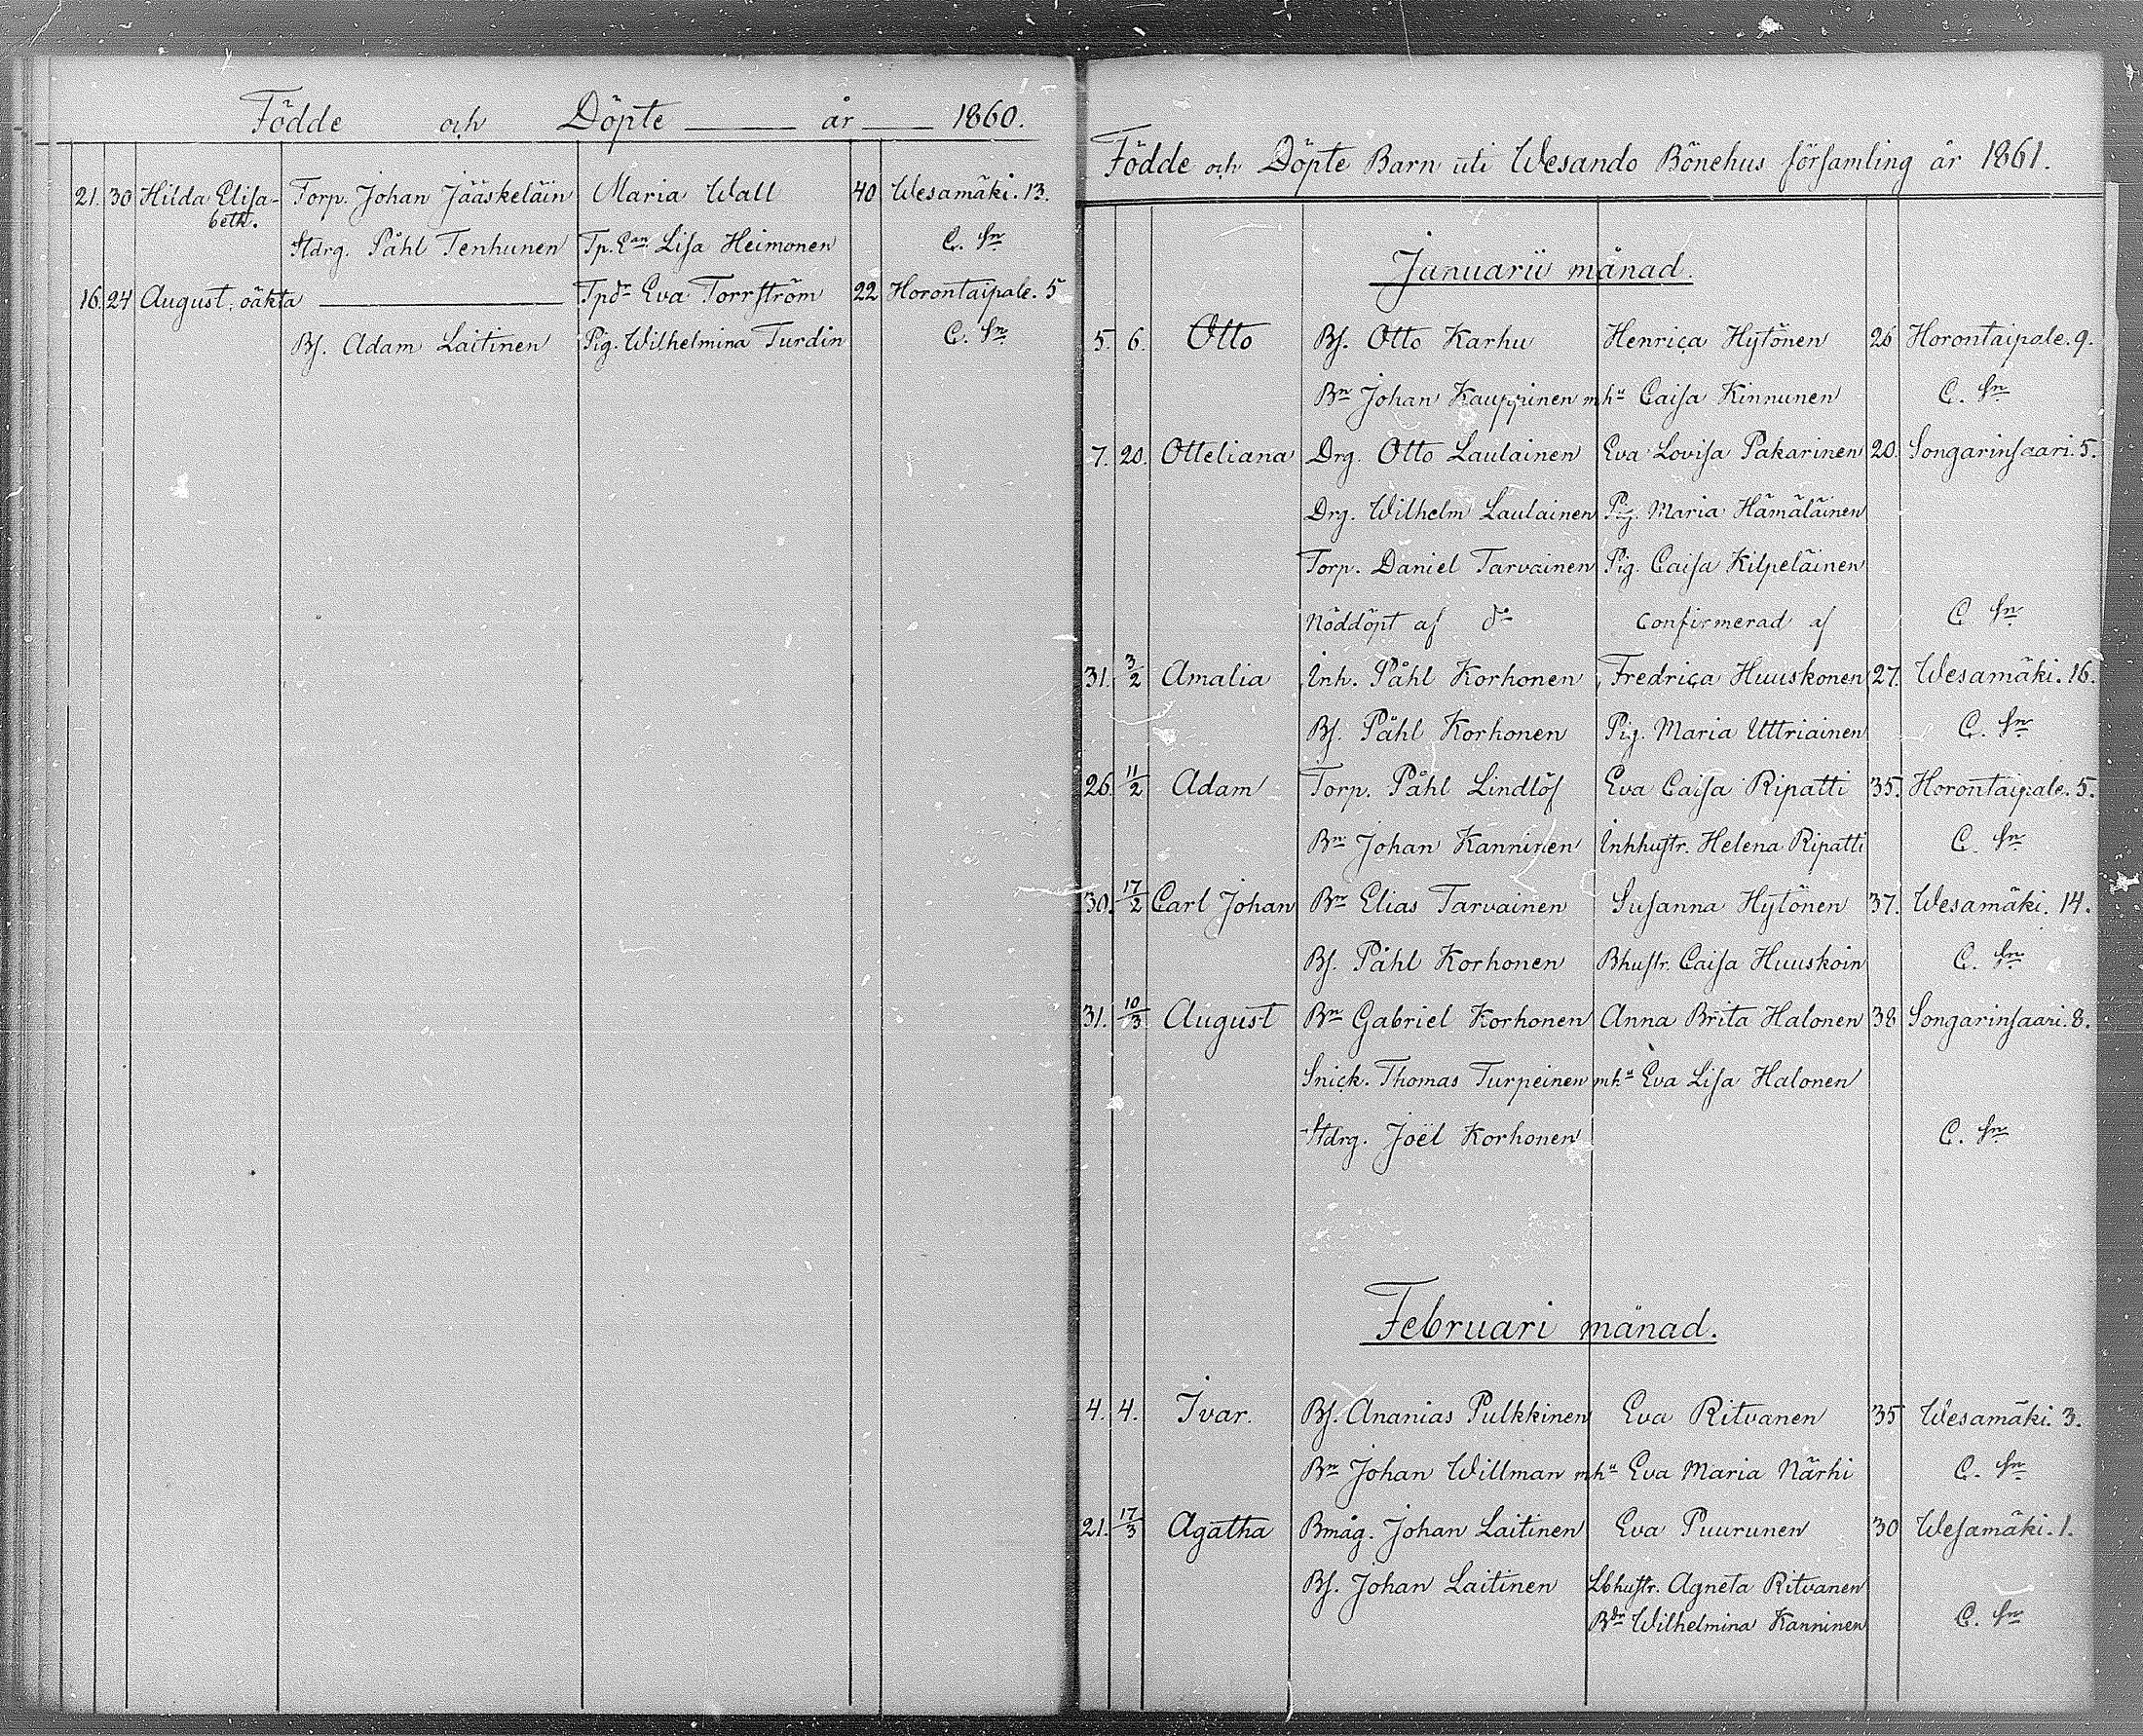 Födde och Döpte år 1860.
21. 30 Hilda Elisa- Torp. Johan Jääskeläin Maria Wall 40 Wesamäki. 13.
beth.
Stdrg. Påhl Tenhunen Tp. Ean Lisa Heimonen C. Sn
16. 24 August. oäkta Tpdr Eva Torrström 22 Horontaipale. 5
Bs. Adam Laitinen Pig. Wilhelmina Turdin C. Sn
Födde och Döpte Barn uti Wesando Bönehus församling år 1861.
Januarii månad.
5. 6. Otto Bs. Otto Karhu Henrica Hytönen 26 Horontaipale. 9.
Bn Johan Kauppinen mhu Caisa Kinnunen C. Sn
7. 20. Otteliana Drg. Otto Laulainen Eva Lovisa Pakarinen 20. Songarinsaari. 5.
Drg. Wilhelm Laulainen Pig. Maria Hämäläinen
Torp. Daniel Tarvainen Pig. Caisa Kilpeläinen
Nöddöpt af do confirmerad af C Sn
31. 3/2 Amalia Inh. Påhl Korhonen Fredrica Huuskonen 27. Wesamäki. 16.
Bs. Påhl Korhonen Pig. Maria Uttriainen C. Sn
26. 11/2 Adam Torp. Påhl Lindlöf Eva Caisa Ripatti 35. Horontaipale. 5.
Bn Johan Kanninen Inhhustr. Helena Ripatti C. Sn
30. 17/2 Carl Johan Bn Elias Tarvainen Susanna Hytönen 37. Wesamäki. 14.
Bs. Påhl Korhonen Bhustr. Caisa Huuskoin C. Sn
31. 10/3 August Bn Gabriel Korhonen Anna Brita Halonen 38 Songarinsaari. 8.
Snick. Thomas Turpeinen mhu Eva Lisa Halonen
Stdrg. Joël Korhonen C. Sn
Februari månad.
4. 4. Ivar. Bs. Ananias Pulkkinen Eva Ritvanen 35 Wesamäki. 3.
Bn Johan Willman mhu Eva Maria Närhi C. Sn
21. 17/3 Agatha Bmåg. Johan Laitinen Eva Puurunen 30 Wesamäki. 1.
Bs. Johan Laitinen Lbhustr. Agneta Ritvanen
Bdr Wilhelmina Kanninen C. Sn